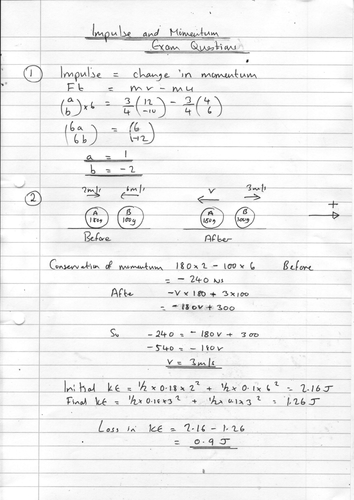 Impulse and Momentum
Exam Questions
1 Impulse = change in momentum
Ft = mv - mu
(a b) × 6 = 3/4 (12 -10) - 3/4 (4 6)
(6a 6b) = (6 -12)
a = 1
b = -2
2 2m/s 6m/s v 3m/s
A 180g B 100g A 180g B 100g +
Before After
Conservation of momentum 180×2 - 100×6 Before
= -240 Ns
After -v×180 + 3×100
= -180v + 300
So -240 = -180v + 300
-540 = -180v
v = 3m/s
Initial KE = 1/2 × 0.18 × 2² + 1/2 × 0.1 × 6² = 2.16 J
Final KE = 1/2 × 0.18 × 3² + 1/2 × 0.1 × 3² = 1.26 J
Loss in KE = 2.16 - 1.26
= 0.9 J